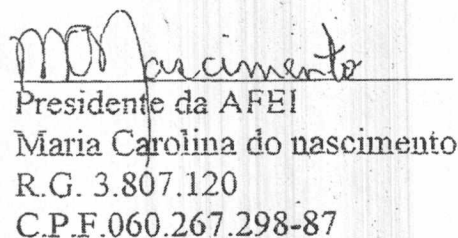 MC Nascimento
Presidente da AFEI
Maria Carolina do nascimento
R.G. 3.807.120
C.P.F.060.267.298-87